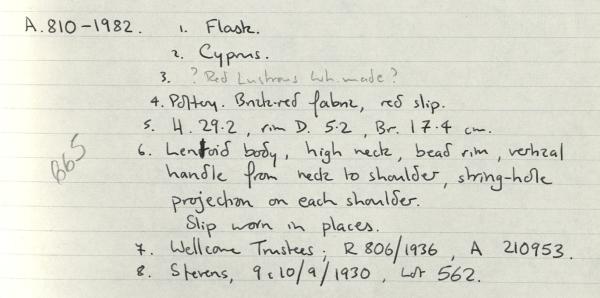 A.810-1982. 1. Flask.
2. Cyprus.
3. ? Red Lustrous Wh. made?
4. Pottery. Brick-red fabric, red slip.
5. H. 29.2, rim D. 5.2, Br. 17.4 cm.
6. Lentoid body, high neck, bead rim, vertical
handle from neck to shoulder, string-hole
projection on each shoulder.
Slip worn in places.
7. Wellcome Trustees; R 806/1936, A 210953.
8. Stevens, 9 & 10/9/1930, Lot 562.
B65